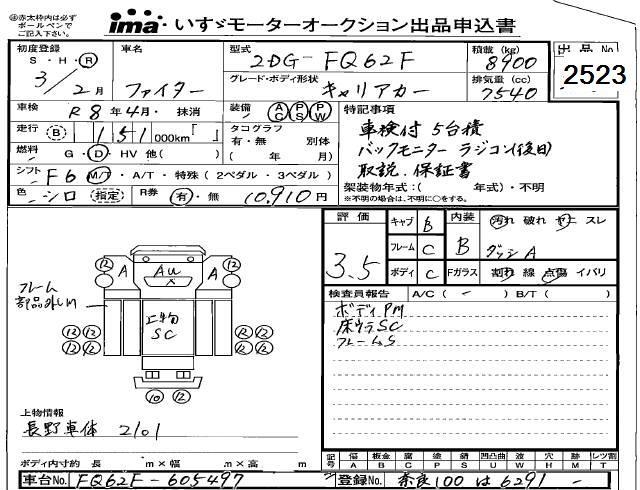 ㊟赤太枠内は必ず
ボールペンで
ご記入下さい。
ima・いすゞモーターオークション出品申込書
初度登録
S・H・Ⓡ
3/2月
車名
ファイター
型式
2DG-FQ62F
グレード・ボディ形状
キャリアカー
積載(kg)
8900
排気量(cc)
7540
出品No
2523
車検
R8年4月・抹消
装備
AC PS PW
走行
B 151 000km「 」
タコグラフ
有・無 別体
( 年 月)
燃料
G・D・HV 他( )
シフト
F6 M/T・A/T・特殊(2ペダル・3ペダル)
色
シロ 指定
R券
有・無 10,910円
特記事項
車検付 5台積
バックモニター ラジコン(後日)
取説.保証書
架装物年式:( 年式)・不明
※不明の場合は、不明に○をする。
評価
3.5
キャブ B
フレーム C
ボディ C
内装
B
汚れ 破れ ヤニ スレ
ダッシA
Fガラス
割れ 線 点傷 イバリ
検査員報告 A/C( - ) B/T( )
ボディPM
床ウラSC
フレームS
フレーム
部品外しM
12 12
A Au A
12 12
上物
SC
12 12 12 12
12 12 12 12
10 12
上物情報
長野車体 2101
ボディ内寸約 長 m×幅 m×高 m
記号
傷 板金 腐 塗 錆 凹凸曲 波 穴 無 レツ割
A B C P S U W H M T
車台No. FQ62F-605497
登録No. 奈良100は6291 -